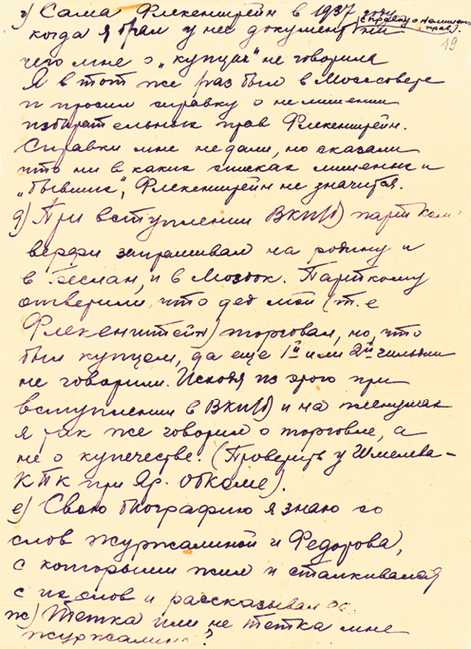 г) Сама Флекенштейн в 1937 году
(справку о нелишении прав).
когда я брал у нее документы ни
19
чего мне о „купцах" не говорила
Я в тот же раз был в Моссовете
и просил справку о не лишении
избирательных прав Флекенштейн.
Справки мне не дали, но сказали
что ни в каких списках лишенных и
„бывших", Флекенштейн не значится.
д) При вступлении ВКП(б) партком
верфи запрашивал на родину и
в Беслан, и в Моздок. Парткому
ответили, что дед мой (т.е
Флекенштейн) торговал, но, что
был купцом, да еще 1й или 2й гильдии
не говорили. Исходя из этого при
вступлении в ВКП(б) и на
я так же говорил о торговле, а
не о купечестве. (Проверить у Шмелева -
КПК при Яр. Обкоме).
е) Свою биографию я знаю со
слов Журжалиной и Федорова,
с которыми жил и сталкивался
с их слов и рассказывал ее.
ж) Тетка или не тетка мне
Журжалина?